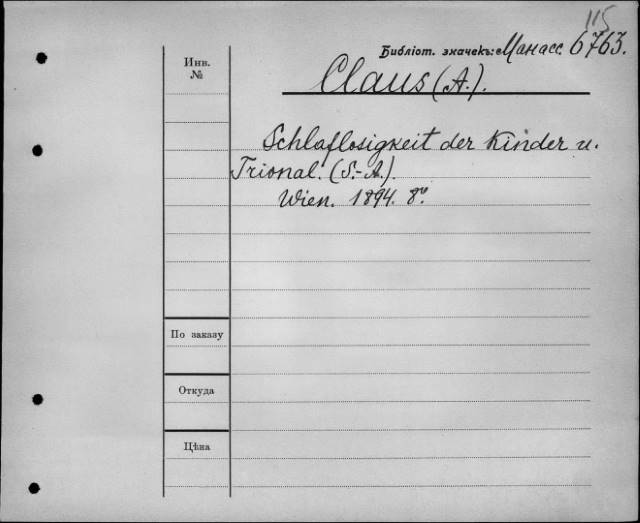 115
Библіот. значекъ: Манасс. 6763.
Инв.
№
Claus (A.).
Schlaflosigkeit der Kinder u.
Trional. (S.-A.).
Wien. 1894. 8º.
По заказу
Откуда
Цѣна